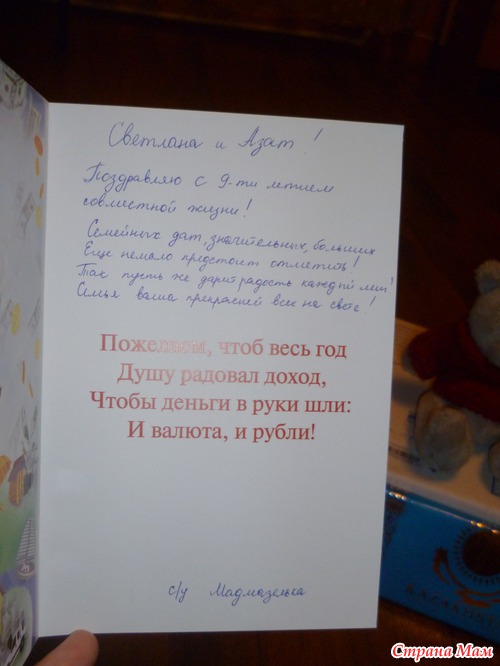 Светлана и Азат!
Поздравляю с 9-ти летием
совместной жизни!
Семейных дат, значительных, больших
Еще немало предстоит отметить!
Так пусть же дарит радость каждый миг!
Семья ваша прекрасней всех на свете!
Пожелаем, чтоб весь год
Душу радовал доход,
Чтобы деньги в руки шли:
И валюта, и рубли!
с/у Мадмазелька
KAZAKHSTAN
Страна Мам